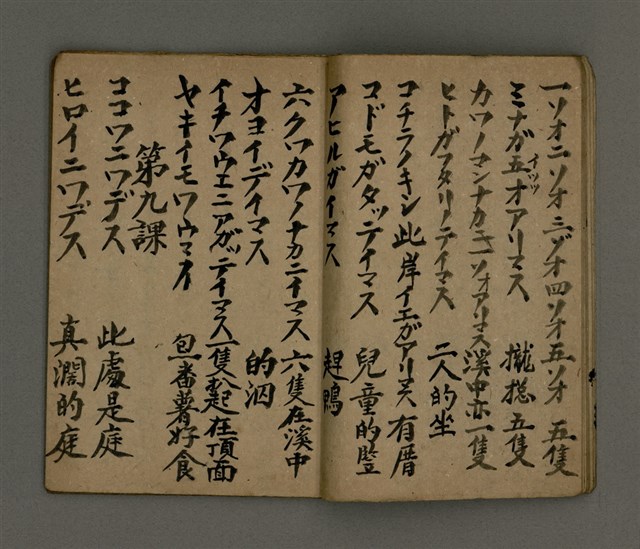 一ソオ二ソオ三ゾオ四ソオ五ソオ 五隻
ミナガ五オアリマス 攏捴五隻
イツツ
カワノマンナカニ一ソオアリマス 溪中亦一隻
ヒトガフタリノテイマス 二人的坐
コチラノキシ 此岸イエガアリマス 有厝
コドモガタッテイマス 兒童的豎
アヒルガイマス 趕鴨
六クワカワノナカニイマス 六隻在溪中
オヨイデイマス 的泅
イチワウエニアガッテイマス 一隻起在頂面
ヤキイモワウマイ 包番薯好食
第九課
ココワニワデス 此處是庭
ヒロイニワデス 真濶的庭